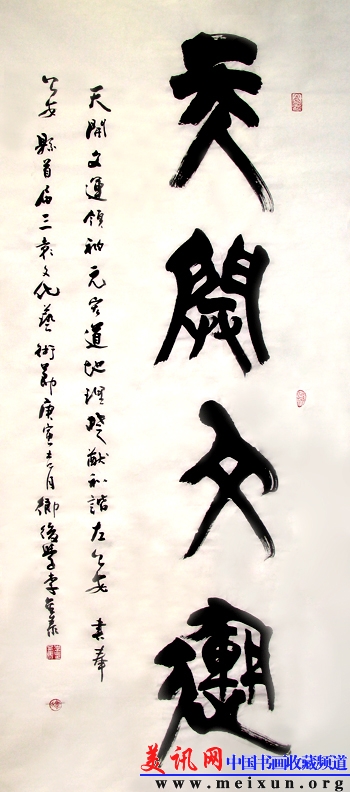 天開文運
天開文運領袖元宏道地理
和諧在公安 書奉
公安縣首届三袁文化藝術節庚寅十一月鄉後學李
美讯网 中国书画收藏频道
www.meixun.org